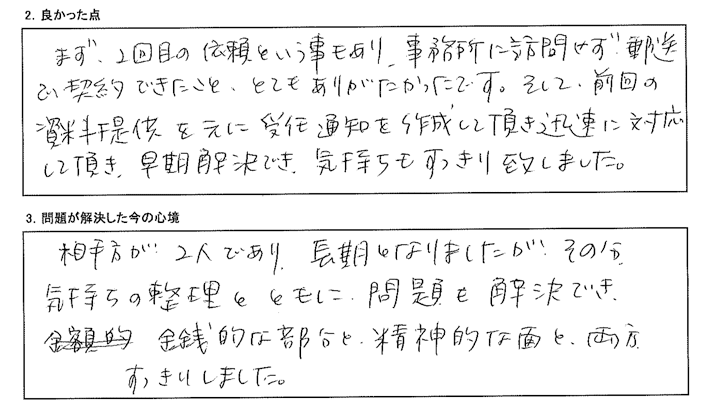 2. 良かった点
まず、2回目の依頼という事もあり、事務所に訪問せず郵送
で契約できたこと、とてもありがたかったです。そして、前回の
資料提供を元に受任通知を作成して頂き迅速に対応
して頂き、早期解決でき、気持ちもすっきり致しました。
3. 問題が解決した今の心境
相手方が2人であり、長期となりましたが、その分、
気持ちの整理とともに、問題も解決でき、
金額的 金銭的な部分と、精神的な面と、両方
すっきりしました。